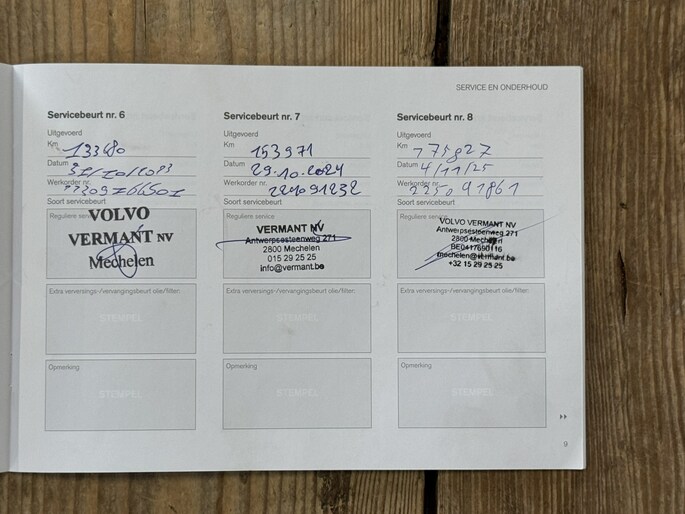 SERVICE EN ONDERHOUD
Servicebeurt nr. 6
Uitgevoerd
Km 133480
Datum
Werkorder nr.
Soort servicebeurt
Reguliere service
VOLVO
VERMANT NV
Mechelen
Extra verversings-/vervangingsbeurt olie/filter:
STEMPEL
Opmerking:
STEMPEL
Servicebeurt nr. 7
Uitgevoerd
Km 153971
Datum 29.10.2024
Werkorder nr.
Soort servicebeurt
Reguliere service
VERMANT NV
Antwerpsesteenweg 271
2800 Mechelen
015 29 25 25
info@vermant.be
Extra verversings-/vervangingsbeurt olie/filter:
STEMPEL
Opmerking:
STEMPEL
Servicebeurt nr. 8
Uitgevoerd
Km 175827
Datum 4/11/25
Werkorder nr. 225091861
Soort servicebeurt
Reguliere service
VOLVO VERMANT NV
Antwerpsesteenweg 271
2800 Mechelen
mechelen@vermant.be
+32 15 29 25 25
Extra verversings-/vervangingsbeurt olie/filter:
STEMPEL
Opmerking:
STEMPEL
9